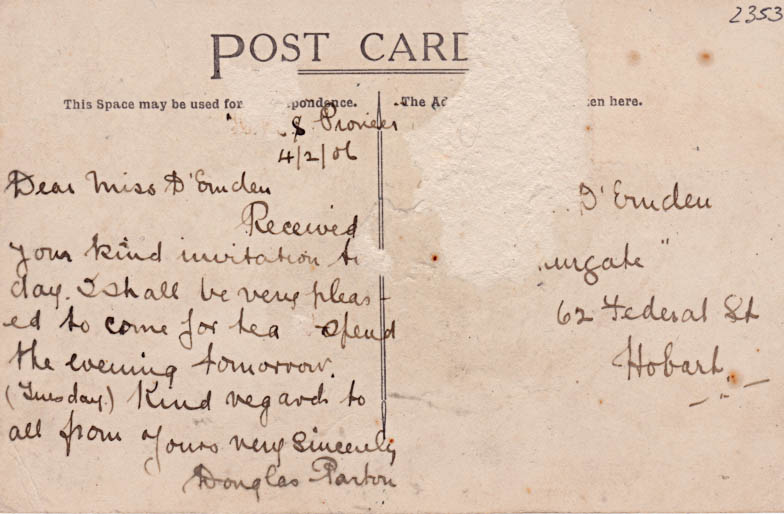 2353
POST CARD
This Space may be used for pondence.
The Ad en here.
S Pioneer
4/2/06
Dear Miss D'Emden
Received
your kind invitation to
day. I shall be very pleas-
ed to come for tea spend
the evening tomorrow.
(Tuesday.) Kind regards to
all from yours very sincerely
Douglas Parton
D'Emden
ungate"
62 Federal St
Hobart